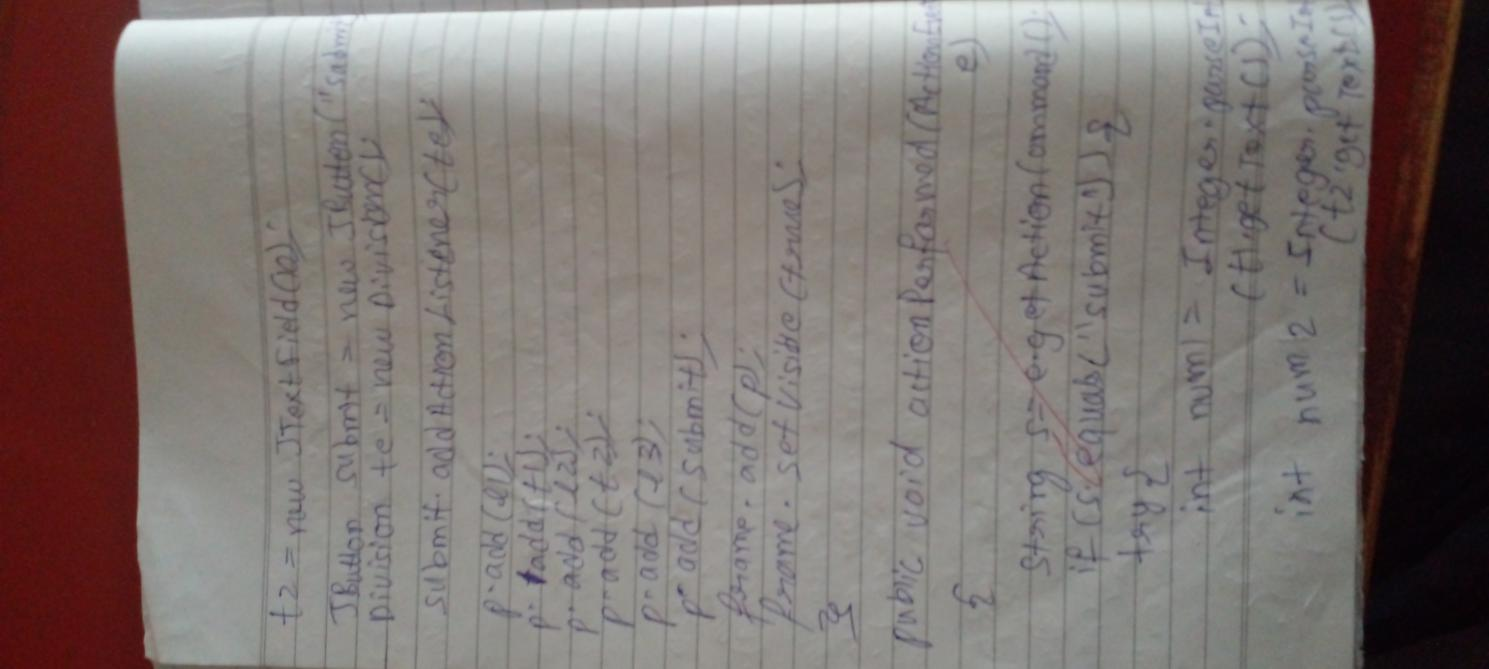 t2 = new JTextField(10);
JButton submit = new JButton("submi
Division te = new Division();
submit. addActionListener(te);
p.add(l1);
p.add(t1);
p.add(l2);
p.add(t2);
p.add(l3);
p.add(submit);
frame.add(p);
frame.setVisible(true);
}
public void actionPerformed(ActionEven
e)
{
String s= e.getActionCommand();
if (s.equals("submit")) {
try{
int num1 = Integer.parseIn
(t1.getText());
int num2 = Integer.parseIn
(t2.getText())